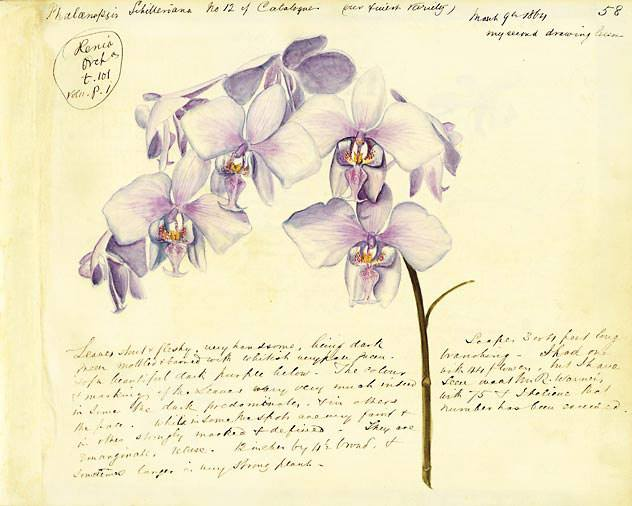 Phalaenopsis Schilleriana No 12 of Catalogue (our finest Variety)
March 9th 1864
58
my second drawing
Xenia
Orch
t. 101
Vol II. P. 1
Leaves stout & fleshy, very handsome, being dark
green mottled & barred with whitish very pale green.
Of a beautiful dark purple below. The colour
& markings of the Leaves vary very much indeed
in some the dark predominates, & in others
the pale. While in some the spots are very faint &
in others strongly marked & defined. They are
emarginate. 12 inches by 4½ broad, &
sometimes larger in very strong plants.
Scapes 3 or 4 feet long
branching. I had one
with 44 flowers, but I have
seen one at Mr R. Warner's
with 75 & I believe that
number has been exceeded.